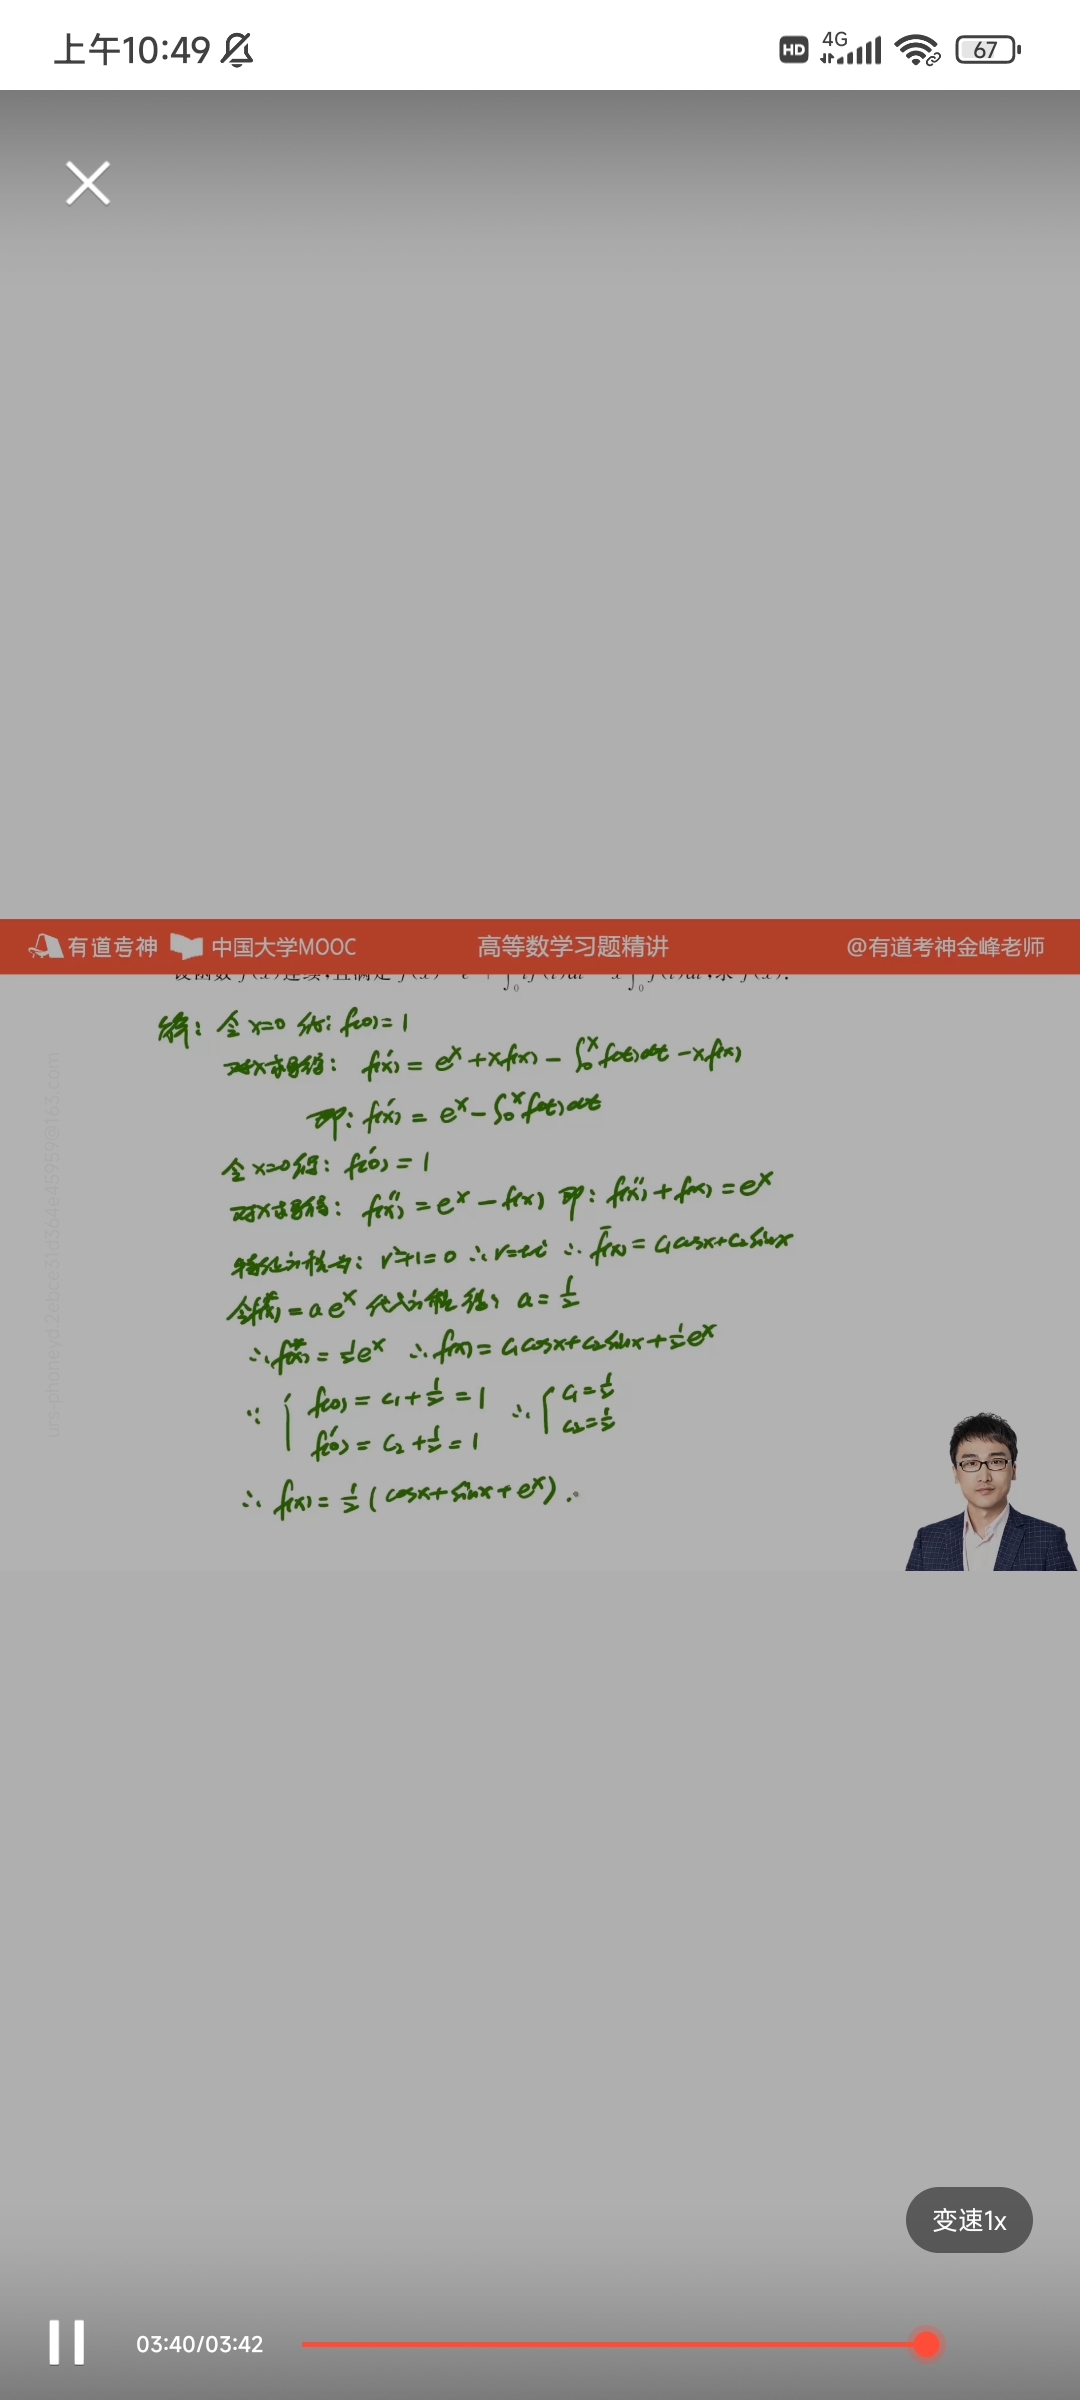 上午10:49 HD 4G 67
有道考神 中国大学MOOC 高等数学习题精讲 @有道考神金峰老师
设函数 f(x)连续,且满足 f(x) e + ∫₀ tf(t)dt x∫₀ f(t)dt,求 f(x).
解: 令x=0得: f(0)=1
对x求导得: f'(x) = eˣ+xf(x) - ∫₀ˣ f(t)dt - xf(x)
即: f'(x) = eˣ - ∫₀ˣ f(t)dt
令x=0得: f'(0) = 1
对x求导得: f''(x) = eˣ - f(x) 即: f''(x) + f(x) = eˣ
特征方程为: r²+1=0 ∴r=±i ∴ f̄(x) = c₁cosx+c₂sinx
令f*(x) = aeˣ 代入方程得: a = 1/2
∴ f*(x) = 1/2 eˣ ∴ f(x) = c₁cosx+c₂sinx+1/2 eˣ
∵ { f(0) = c₁+1/2 = 1 ∴ { c₁=1/2
f'(0) = c₂+1/2 = 1 c₂=1/2
∴ f(x) = 1/2 (cosx+sinx+eˣ).
变速1x
03:40/03:42